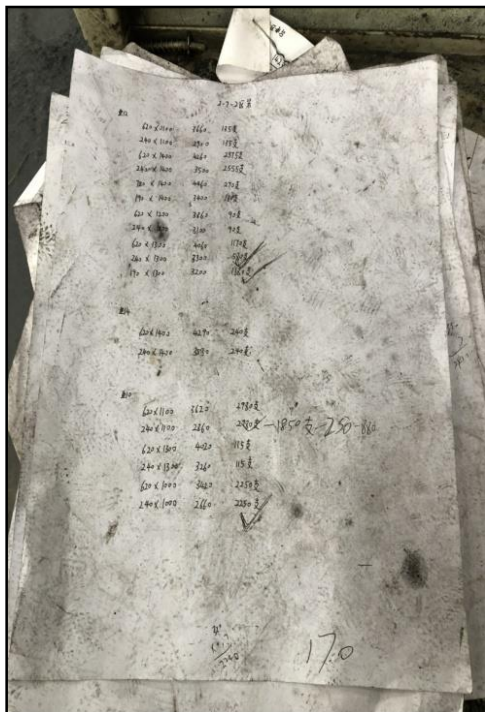 620×1100 3660 135支
240×1100 2900 135支
620×1400 4260
240×1400 3500 2555支
780×1400 4460 290支
190×1400 3400
620×1200 3860 90支
3100 90支
620×1300 4060 1170支
240×1300 3300
190×1300 3200
620×1400 4290 240支
240×1400 240支
620×1100 3620 2980支
240×1100 2860 2980支 -1850支-250-880
620×1300 4020 115支
240×1300 3260 115支
620×1000 3420 2250支
240×1000 2660 2250支
170